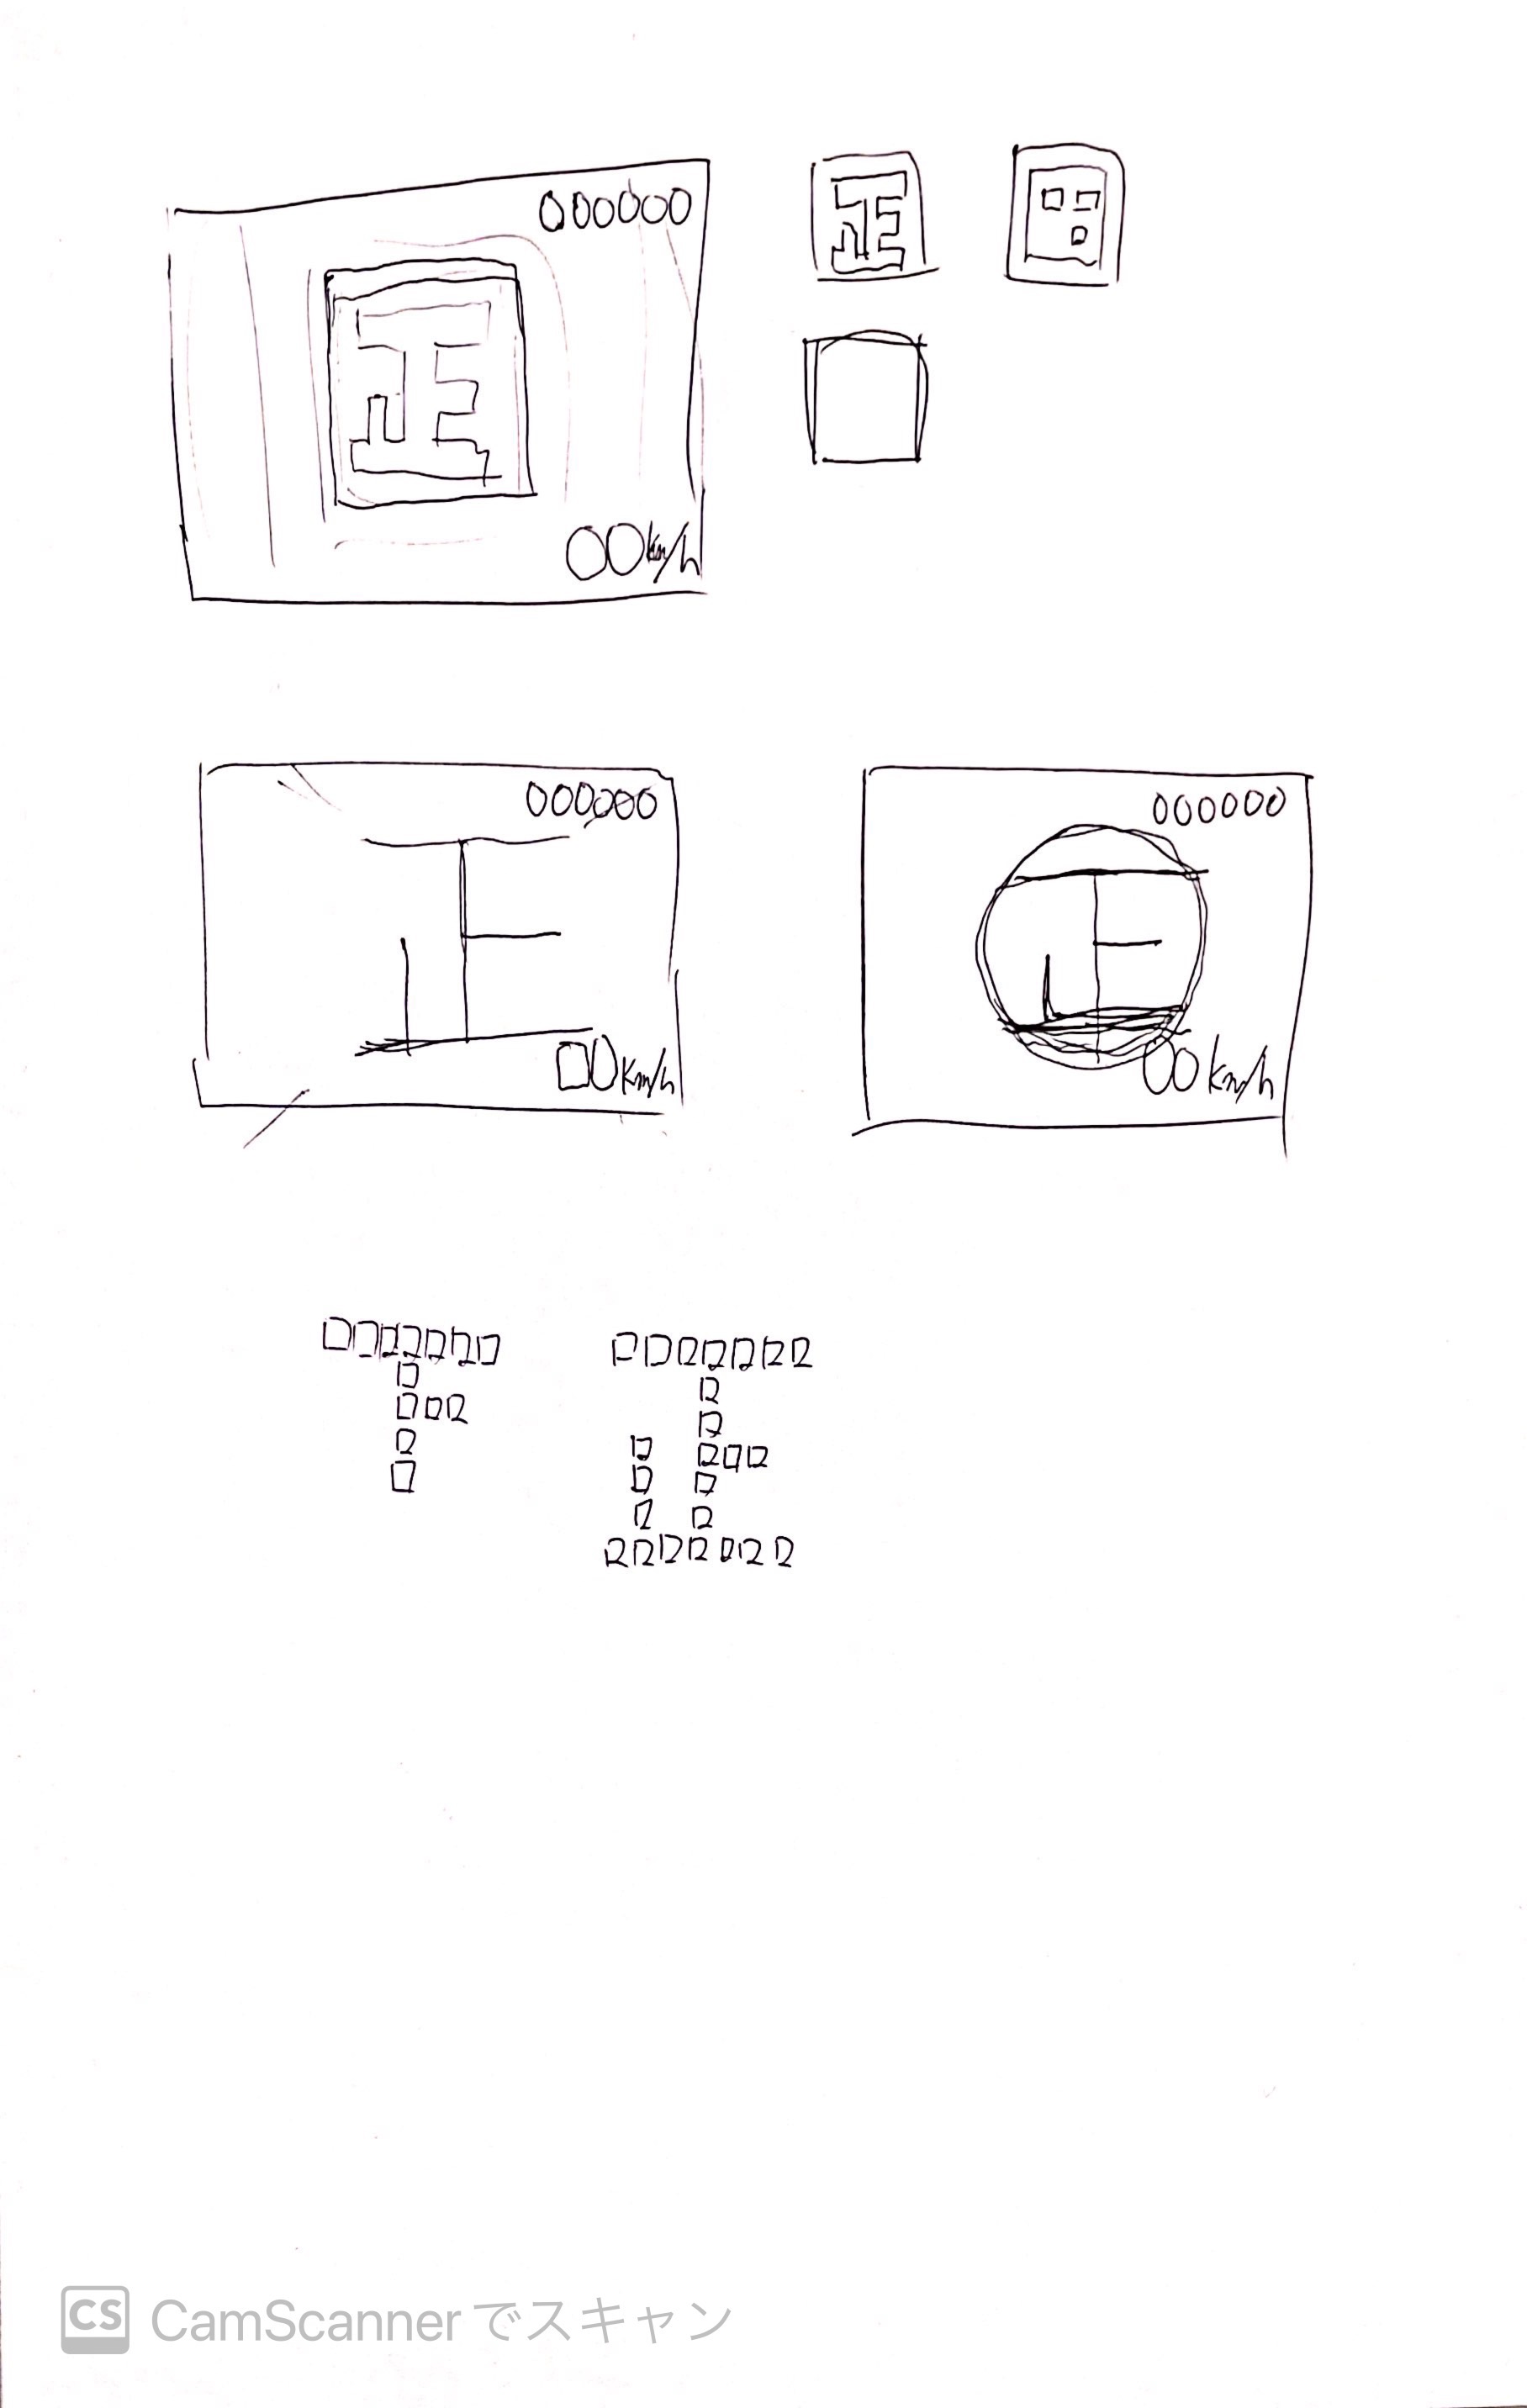 000000
正
00km/h
正
000000
正
00km/h
000000
正
00km/h
CS CamScannerでスキャン